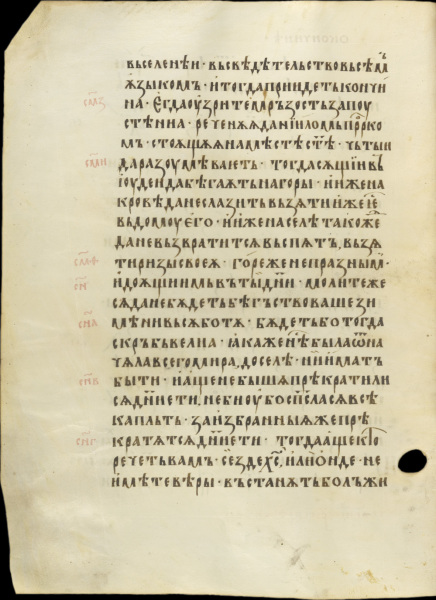 вьселенѣи · въсвѣдѣтельствовьсѣмъ
ѩзыкомъ · итогдапридетькончи
на · Егдаоузритемръзостьзапоу
стѣниꙗ · реченѫѭданиломьпррко
мь · стоѩщѫѭнамѣстѣстѣ · чьтыи
даразоумѣваѥть · тогдасѫщиивъ
июдеидабѣгаѭтьнагоры · иижена
кровѣданеслазитьвьзѧтииже
вьдомоуего · иижениаселѣтакожде
даневъзвратитсѧвьспѧть, възѧ
тиризысвоеѩ · гореженепразныимъ
идоѩщиимъвътыдни · молитеже
сѧданебѫдетьбѣгьствовашезі
мѣнивьсѫботѫ · бѫдетьботогда
скръбьвелиа · ꙗкаженѣбылаотъна
чѧлавсегомира, доселѣ · ниимать
быти · иащенебышѧпрѣкратили
сѧдниети, небиоубоспаласѧвсѣ
каплъть · заизбранныѩжепрѣ
кратѧтсѧдниети · тогдаащекто
речетьвамъ · сездехс, илионде · не
имѣтевѣры · въстанѫтьболъжи